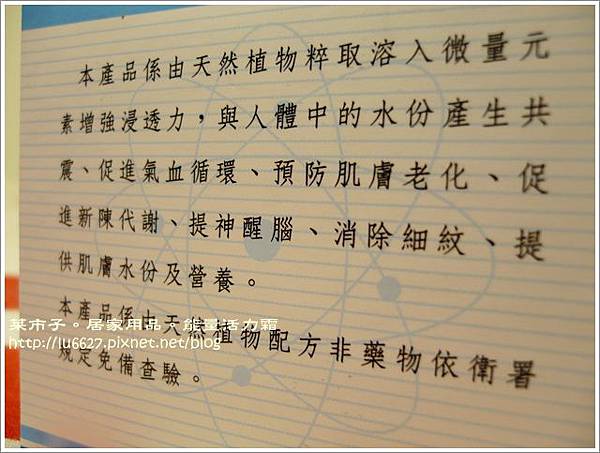 本產品係由天然植物粹取溶入微量元
素增強浸透力，與人體中的水份產生共
震、促進氣血循環、預防肌膚老化、促
進新陳代謝、提神醒腦、消除細紋、提
供肌膚水份及營養。
本產品係由天然植物配方非藥物依衛署
規定免備查驗。
菜市子。居家用品。能量活力霜
http://lu6627.pixnet.net/blog